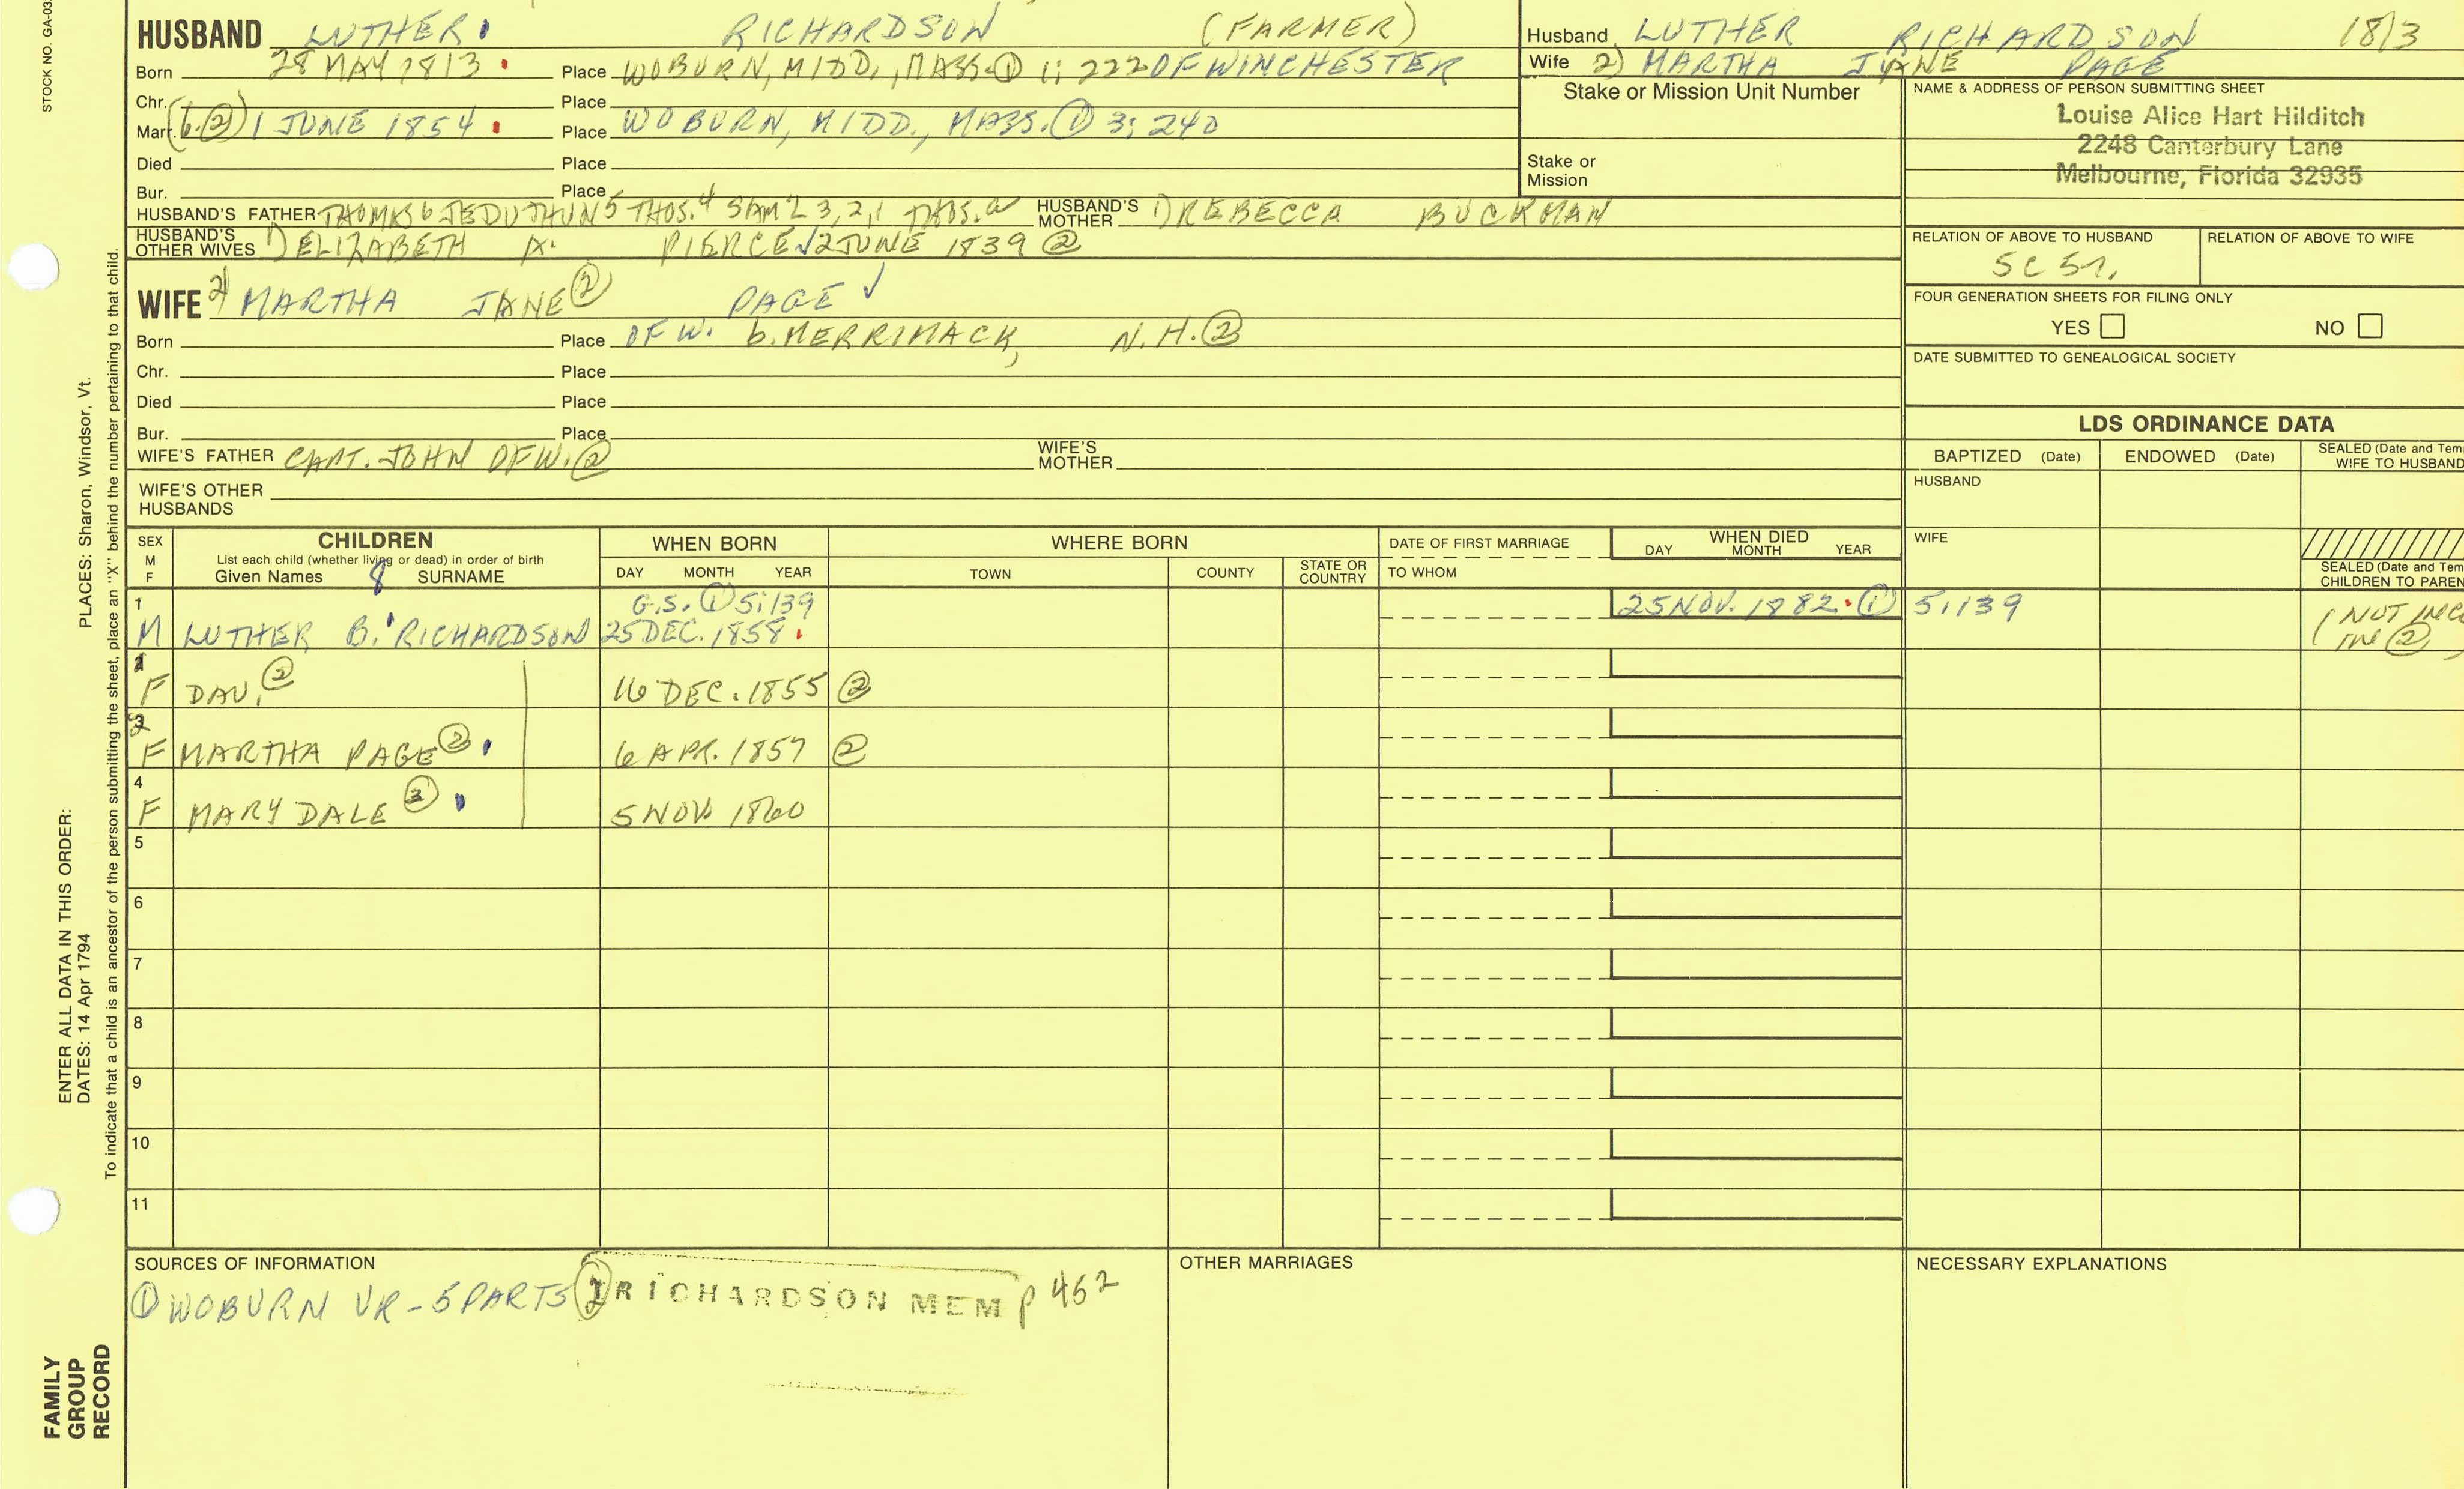 STOCK NO. GA-03
HUSBAND LUTHER RICHARDSON (FARMER)
Born 28 MAY 1813 Place WOBURN, MIDD., MASS. ① 1; 222 OF WINCHESTER
Chr. Place
Marr. (b.②) 1 JUNE 1854 Place WOBURN, MIDD., MASS. ① 3; 240
Died Place
Bur. Place
HUSBAND'S FATHER THOMAS 6 JEDUTHUN 5 THOS. 4 SAM'L 3, 2, 1 HUSBAND'S MOTHER 1) REBECCA BUCKMAN
HUSBAND'S OTHER WIVES 1) ELIZABETH A. PIERCE √ 2 JUNE 1839 ②
WIFE 2) MARTHA JANE ② PAGE √
Born Place OF W. b. MERRIMACK, N.H. ②
Chr. Place
Died Place
Bur. Place
WIFE'S FATHER CAPT. JOHN OF W. ② WIFE'S MOTHER
WIFE'S OTHER HUSBANDS
Husband LUTHER RICHARDSON 1813
Wife 2) MARTHA JANE PAGE
Stake or Mission Unit Number
Stake or Mission
NAME & ADDRESS OF PERSON SUBMITTING SHEET
Louise Alice Hart Hilditch
2248 Canterbury Lane
Melbourne, Florida 32935
RELATION OF ABOVE TO HUSBAND RELATION OF ABOVE TO WIFE
5C 5
FOUR GENERATION SHEETS FOR FILING ONLY
YES NO
DATE SUBMITTED TO GENEALOGICAL SOCIETY
LDS ORDINANCE DATA
BAPTIZED (Date) ENDOWED (Date) SEALED (Date and Tem
WIFE TO HUSBAND
HUSBAND
WIFE
SEALED (Date and Tem
CHILDREN TO PAREN
SEX M F CHILDREN WHEN BORN WHERE BORN DATE OF FIRST MARRIAGE WHEN DIED
List each child (whether living or dead) in order of birth
Given Names 8 SURNAME DAY MONTH YEAR TOWN COUNTY STATE OR COUNTRY TO WHOM DAY MONTH YEAR
1 G.S. ① 5:139 25 NOV. 1882. ① 5:139 (NOT INC
M LUTHER B. RICHARDSON 25 DEC. 1858. IN ②
F DAU. ② 16 DEC. 1855 ②
F MARTHA PAGE ② 6 APR. 1857 ②
4
F MARY DALE ② 5 NOV. 1860
5
6
7
8
9
10
11
SOURCES OF INFORMATION
① WOBURN VR - 5 PARTS ② RICHARDSON MEM p 462
OTHER MARRIAGES
NECESSARY EXPLANATIONS
ENTER ALL DATA IN THIS ORDER:
DATES: 14 Apr 1794
PLACES: Sharon, Windsor, Vt.
To indicate that a child is an ancestor of the person submitting the sheet, place an "X" behind the number pertaining to that child.
FAMILY
GROUP
RECORD